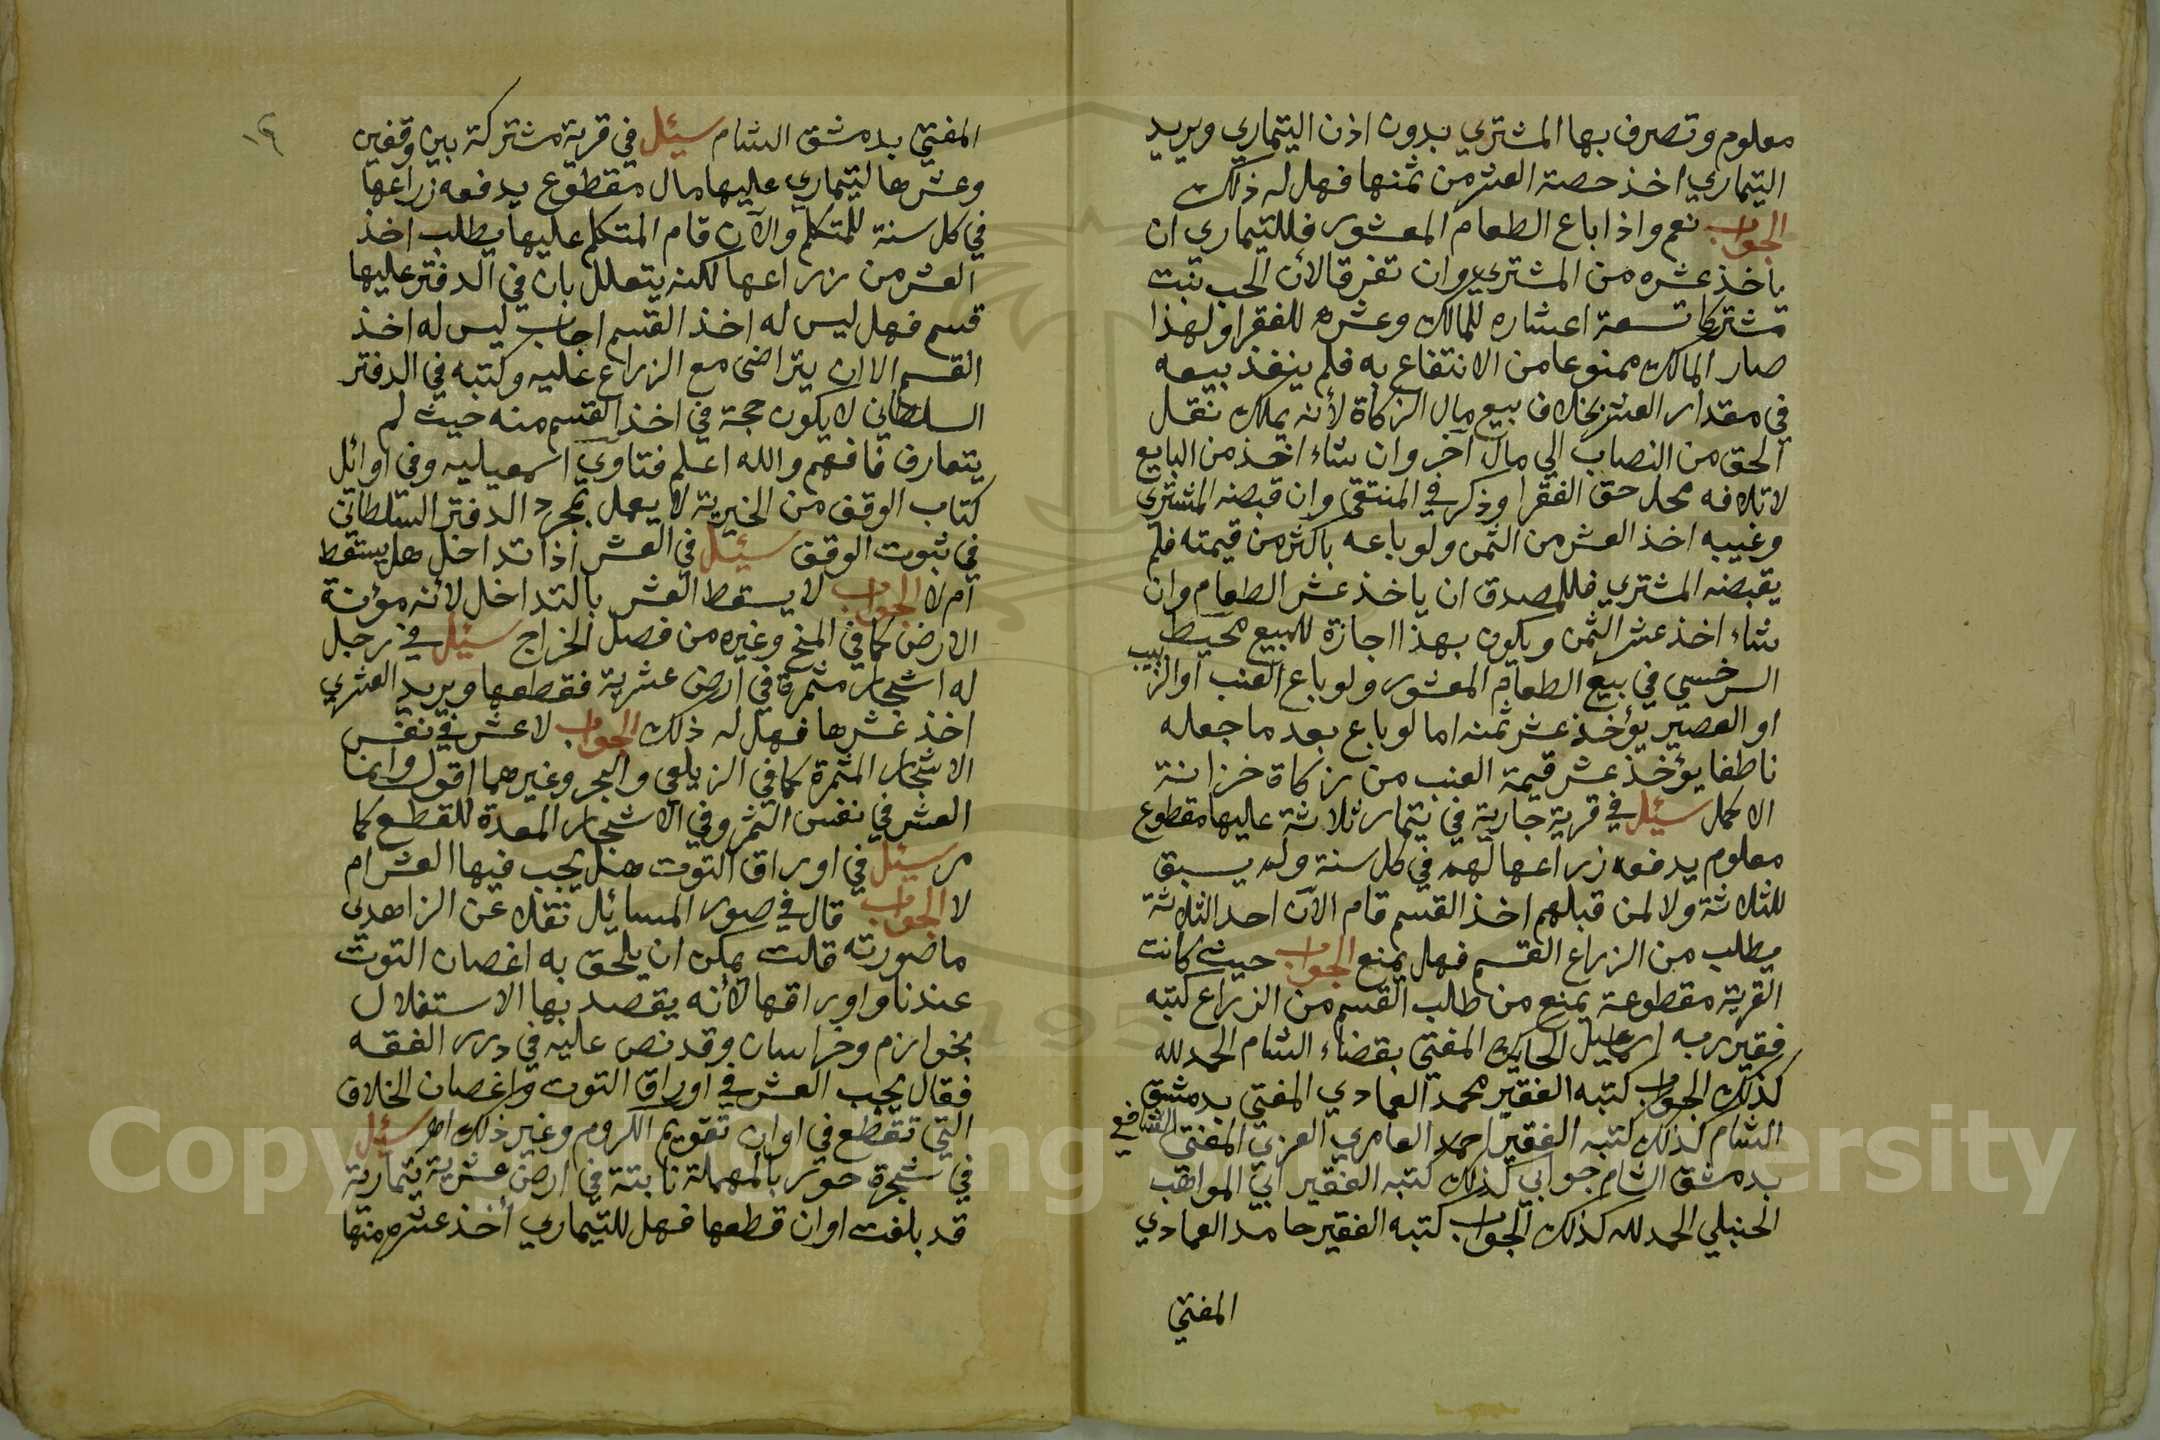 معلوم وتصرف بها المشتري بدون اذن التيماري ويريد
التيماري اخذ حصة العشر من ثمنها فهل له ذلك
الجواب نعم واذا باع الطعام المعشور فللتيماري ان
ياخذ عشره من المشتري وان تفرقا لأن الحب نبت
مشتركا تسعة اعشاره للمالك وعشره للفقرا ولهذا
صار المالك ممنوعا من الانتفاع به فلم ينفذ بيعه
في مقدار العشر بخلاف بيع مال الزكاة لأنه يملك نقل
الحق من النصاب الى مال آخر وان شاء اخذ من البايع
لاتلافه محل حق الفقرا وذكر في المنتقى وان قبضه المشتري
وغيبه اخذ العشر من الثمن ولو باعه باكثر من قيمته فلم
يقبضه المشتري فللمصدق ان ياخذ عشر الطعام وان
شاء اخذ عشر الثمن ويكون بهذا اجازة للبيع محيط
السرخسي في بيع الطعام المعشور ولو باع العنب او الزبيب
او العصير يؤخذ عشر ثمنه اما لو باع بعد ما جعله
ناطفا يؤخذ عشر قيمة العنب من زكاة خزانة
الاكمل سئل في قرية جارية في تيمار ثلاثة عليها مقطوع
معلوم يدفعه زراعها لهم في كل سنة ولم يسبق
للثلاثة ولا لمن قبلهم اخذ القسم قام الآن احد الثلاثة
يطلب من الزراع القسم فهل يمنع الجواب حيث كانت
القرية مقطوعة يمنع من طالب القسم من الزراع كتبه
فقير ربه اسمعيل الحايك المفتي بقضاء الشام الحمد لله
كذلك الجواب كتبه الفقير محمد العمادي المفتي بدمشق
الشام كذلك كتبه الفقير احمد العامري الغزي المفتي الشافعي
بدمشق الشام جوابي كذلك كتبه الفقير ابي المواهب
الحنبلي الحمد لله كذلك الجواب كتبه الفقير حامد العمادي
المفتي
١٦
المفتي بدمشق الشام سئل في قرية مشتركة بين وقفين
وعشرها لتيماري عليها مال مقطوع يدفعه زراعها
في كل سنة للمتكلم والآن قام المتكلم عليها يطلب اخذ
العشر من زراعها لكنه يتعلل بان في الدفتر عليها
قسم فهل ليس له اخذ القسم اجاب ليس له اخذ
القسم الا ان يتراضى مع الزراع عليه وكتبه في الدفتر
السلطاني لا يكون حجة في اخذ القسم منه حيث لم
يتعارف فافهم والله اعلم فتاوي اسمعيليه وفي اوائل
كتاب الوقف من الخيرية لا يعمل بمجرد الدفتر السلطاني
في ثبوت الوقف سئل في العشر اذا تداخل هل يسقط
ام لا الجواب لا يسقط العشر بالتداخل لأنه مؤنة
الارض كما في المنح وغيره من فصل الخراج سئل في رجل
له اشجار مثمرة في ارض عشرية فقطعها ويريد العشري
اخذ عشرها فهل له ذلك الجواب لا عشر في نفس
الاشجار المثمرة كما في الزيلعي والبحر وغيرهما اقول وانما
العشر في نفس الثمر وفي الاشجار المعدة للقطع كما
مر سئل في اوراق التوت هل يجب فيها العشر ام
لا الجواب قال في صور المسائل نقلا عن الزاهدي
ما صورته قلت يمكن ان يلحق به اغصان التوت
عندنا واوراقها لأنه يقصد بها الاستغلال
بخوارزم وخراسان وقد نص عليه في درر الفقه
فقال يجب العشر في اوراق التوت واغصان الخلاف
التي تقطع في اوان تقويم الكروم وغير ذلك اهر سئل
في شجرة حور بالمهملة نابتة في ارض عشرية تيمارية
قد بلغت اوان قطعها فهل للتيماري أخذ عشره منها
Copyright © King Saud University
1957